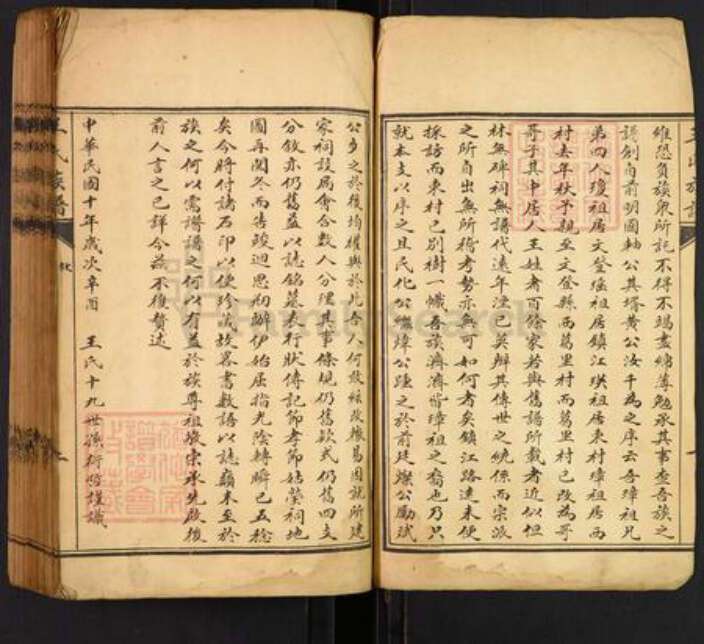 維恐負族眾所託不得不竭盡綿薄勉承其事查吾族之
譜創自前明圖軸公其壻黃公汝千為之序云吾璋祖兄
弟四人瓊祖居文登瑤祖居鎮江琪祖居東村璋祖居西
村去年秋予親至文登縣西葛里村而葛里村已改為哥
哥于其中居人王姓者百餘家若與舊譜所載者近似但
林無碑祠無譜代遠年湮已莫辨其傳世之統係而宗派
之所自出無所稽考勢亦無可如何者矣鎮江路遠未便
採訪而東村已別樹一幟吾族濟濟皆璋祖之裔也乃只
就本支以序之且民化公繼煒公踵之於前廷燦公勵斌
公步之於後均權輿於此吾人何敢絃改轍易因就所建
家祠設局會合數人分理其事條規仍舊款式仍舊四支
分敘亦仍舊益以誌銘墓表行狀傳記節孝節姑塋祠地
圖再閱冬而告竣迴思初辦伊始屈指光陰轉瞬已五稔
矣今將付諸石印以便珍藏故畧書數語以誌顛末至於
族之何以需譜譜之何以有益於族尊祖敬宗承先啟後
前人言之已詳今茲不復贅述
中華民國十年歲次辛酉 王氏十九世孫衍 謹識
王氏族譜
FamilySearch